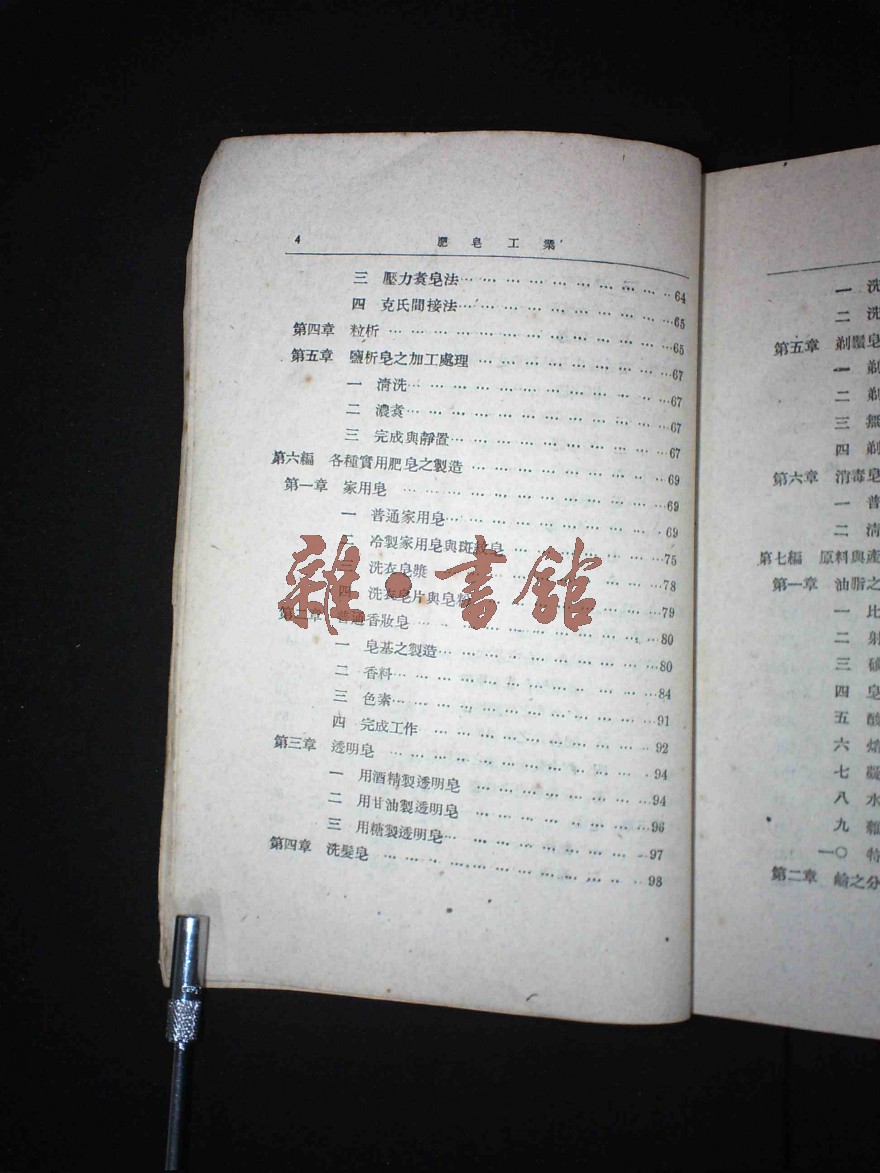 4 肥皂工業
三 壓力煮皂法 … 64
四 克氏間接法 … 65
第四章 粒析 … 65
第五章 鹽析皂之加工處理 … 67
一 清洗 … 67
二 濃煮 … 67
三 完成與靜置 … 67
第六編 各種實用肥皂之製造 … 69
第一章 家用皂 … 69
一 普通家用皂 … 69
二 冷製家用皂與斑紋皂 … 75
三 洗衣皂漿 … 78
四 洗衣皂片與皂粉 … 79
第二章 普通香妝皂 … 80
一 皂基之製造 … 80
二 香料 … 84
三 色素 … 91
四 完成工作 … 92
第三章 透明皂 … 94
一 用酒精製透明皂 … 94
二 用甘油製透明皂 … 96
三 用糖製透明皂 … 97
第四章 洗髮皂 … 98
雜·書館
一 洗
二 洗
第五章 剃鬚皂
一 剃
二 剃
三
四 剃
第六章 消毒皂
一 普
二 清
第七編 原料與產
第一章 油脂之
一 比
二
三
四 皂
五 酸
六
七
八 水
九
一〇 特
第二章 鹼之分